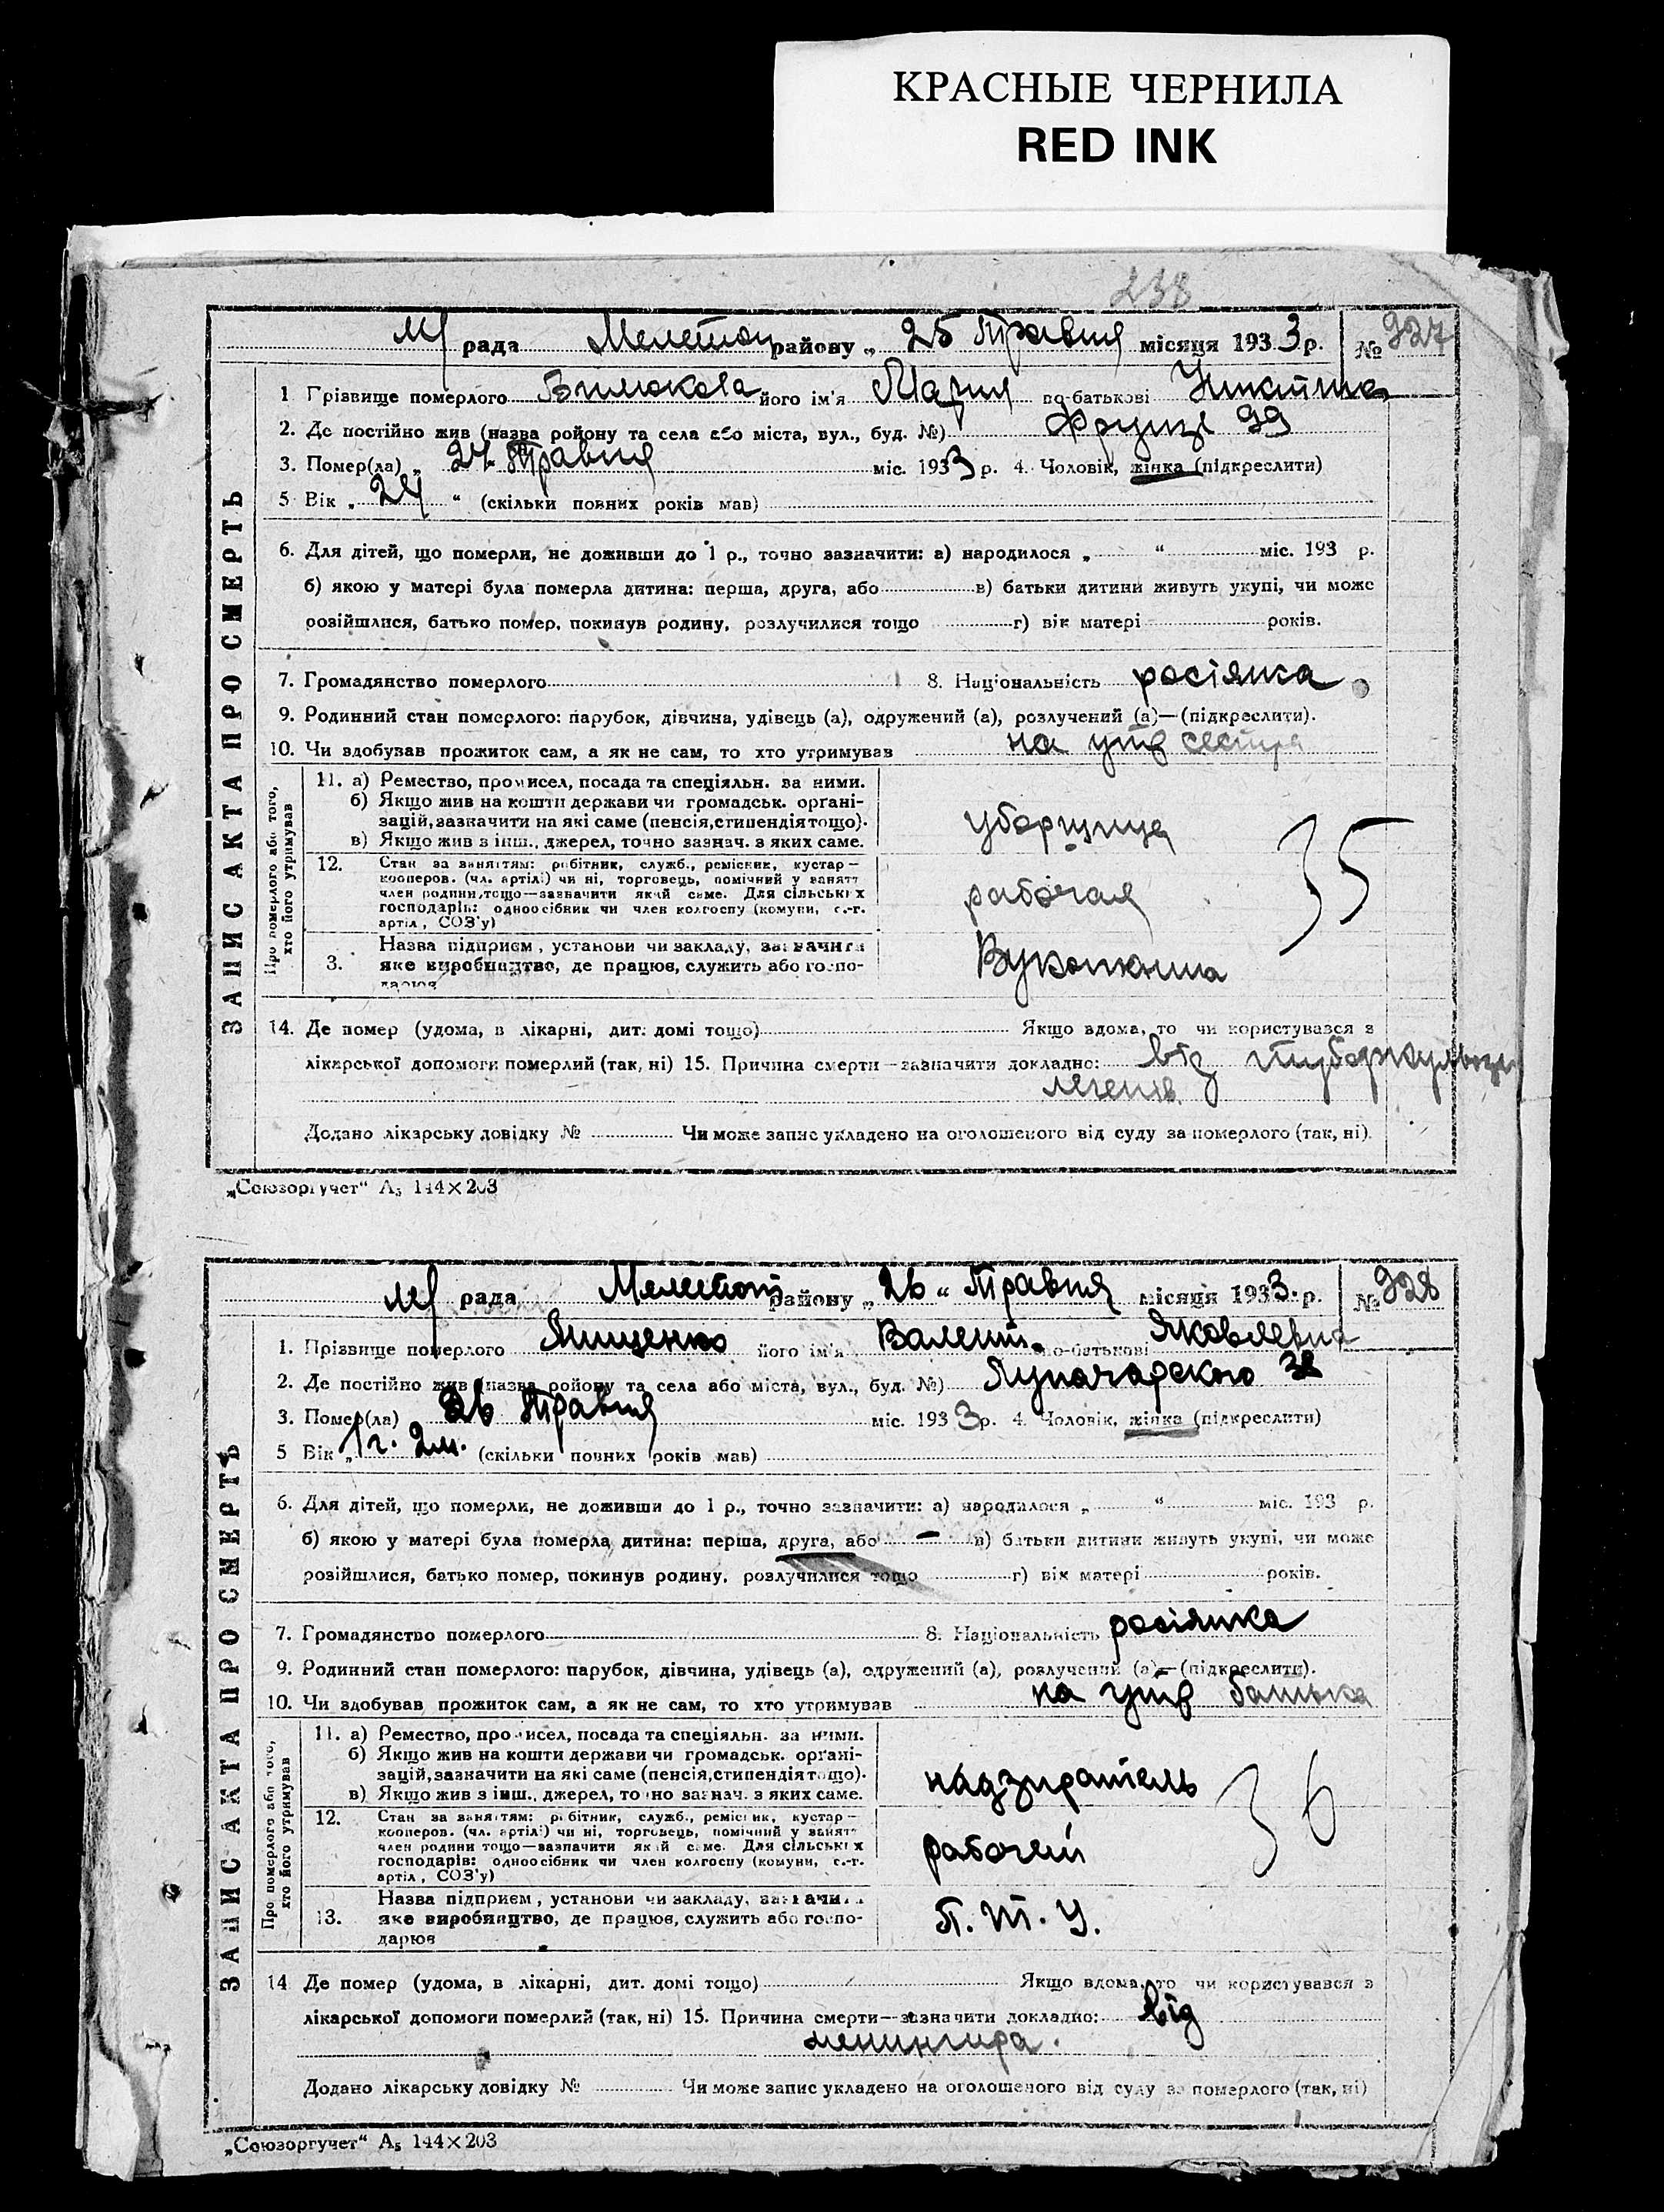 КРАСНЫЕ ЧЕРНИЛА
RED INK
238
рада Мелетоп району „ 25 Травня місяця 1933 р. № 327
ЗАПИС АКТА ПРО СМЕРТЬ
1 Прізвище померлого його ім'я Мария по-батькові
2. Де постійно жив (назва ройону та села або міста, вул., буд. №) Фрунзе 99
3. Помер(ла) „ 24 Травня міс. 1933 р. 4. Чоловік, жінка (підкреслити)
5 Вік „ 24 “ (скільки повних років мав)
6. Для дітей, що померли, не доживши до 1 р., точно зазначити: а) народилося „ “ міс. 193 р.
б) якою у матері була померла дитина: перша, друга, або в) батьки дитини живуть укупі, чи може
розійшлися, батько помер, покинув родину, розлучилися тощо г) вік матері років.
7. Громадянство померлого 8. Національність росіянка
9. Родинний стан померлого: парубок, дівчина, удівець (а), одружений (а), розлучений (а)—(підкреслити).
10. Чи здобував прожиток сам, а як не сам, то хто утримував на утр сестра
Про померлого або того, хто його утримував
11. а) Ремество, промисел, посада та спеціяльн. за ними.
б) Якщо жив на кошти держави чи громадськ. органі-
зацій, зазначити на які саме (пенсія, стипендія тощо).
в) Якщо жив з інш., джерел, точно зазнач. з яких саме.
уборщица
35
12. Стан за заняттям: робітник, служб., ремісник, кустар—
кооперов. (чл. артілі) чи ні, торговець, помічний у занятт
член родини, тощо—зазначити який саме. Для сільських
господарів: одноосібник чи член колгоспу (комуни, с.-г.
артіл, СОЗ'у)
рабочая
3. Назва підприєм, установи чи закладу, зазначити
яке виробництво, де працює, служить або госпо-
дарює
14. Де помер (удома, в лікарні, дит. домі тощо) Якщо вдома, то чи користувався з
лікарської допомоги померлий (так, ні) 15. Причина смерти—зазначити докладно: від туберкульоза
легенів.
Додано лікарську довідку № Чи може запис укладено на оголошеного від суду за померлого (так, ні).
„Союзоргучет“ А5 144×203
рада Мелетоп району „ 26 “ Травня місяця 1933 р. № 328
ЗАПИС АКТА ПРО СМЕРТЬ
1. Прізвище померлого Янищенко його ім'я Валент. по-батькові Яковлевна
2. Де постійно жив (назва ройону та села або міста, вул., буд. №) Луначарского 38
3. Помер(ла) „ 26 Травня міс. 1933 р. 4. Чоловік, жінка (підкреслити)
5 Вік „ 1 г. 2 м. (скільки повних років мав)
6. Для дітей, що померли, не доживши до 1 р., точно зазначити: а) народилося „ “ міс. 193 р.
б) якою у матері була померла дитина: перша, друга, або — в) батьки дитини живуть укупі, чи може
розійшлися, батько помер, покинув родину, розлучилися тощо г) вік матері років.
7. Громадянство померлого 8. Національність росіянка
9. Родинний стан померлого: парубок, дівчина, удівець (а), одружений (а), розлучений (а)—(підкреслити).
10. Чи здобував прожиток сам, а як не сам, то хто утримував на утр батька
Про померлого або того, хто його утримував
11. а) Ремество, промисел, посада та спеціяльн. за ними.
б) Якщо жив на кошти держави чи громадськ. органі-
зацій, зазначити на які саме (пенсія, стипендія тощо).
в) Якщо жив з інш., джерел, точно зазнач. з яких саме.
надзиратель
36
12. Стан за заняттям: робітник, служб., ремісник, кустар—
кооперов. (чл. артілі) чи ні, торговець, помічний у занятт
член родини тощо—зазначити який саме. Для сільських
господарів: одноосібник чи член колгоспу (комуни, с.-г.
артіл, СОЗ'у)
рабочий
13. Назва підприєм, установи чи закладу, зазначити
яке виробництво, де працює, служить або госпо-
дарює
П. Т. У.
14 Де помер (удома, в лікарні, дит. домі тощо) Якщо вдома, то чи користувався з
лікарської допомоги померлий (так, ні) 15. Причина смерти—зазначити докладно: від
Додано лікарську довідку № Чи може запис укладено на оголошеного від суду за померлого (так, ні)
„Союзоргучет“ А5 144×203